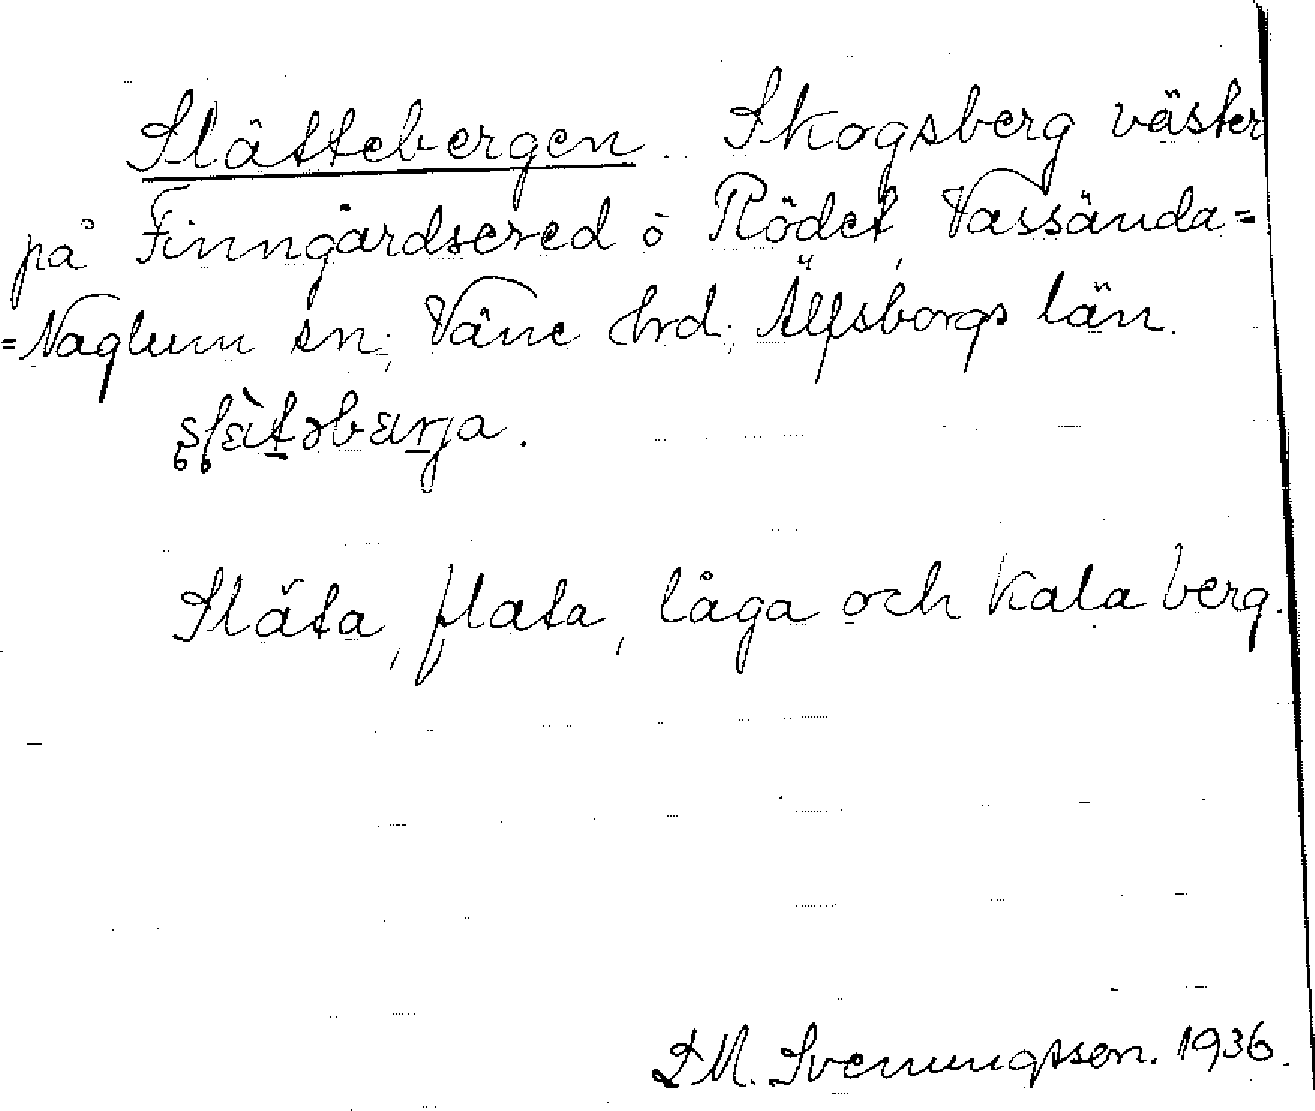 Slättebergen. Skogsberg väster
på Finngårdsered o Rödet, Vassända=
=Naglum sn; Väne hrd; Älfsborgs län.
Släta, flata, låga och kala berg.
D.M. Svenungsson. 1936.